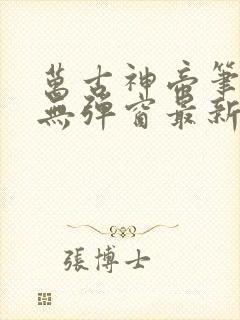 萬古神帝筆
無彈窗最新
張博士